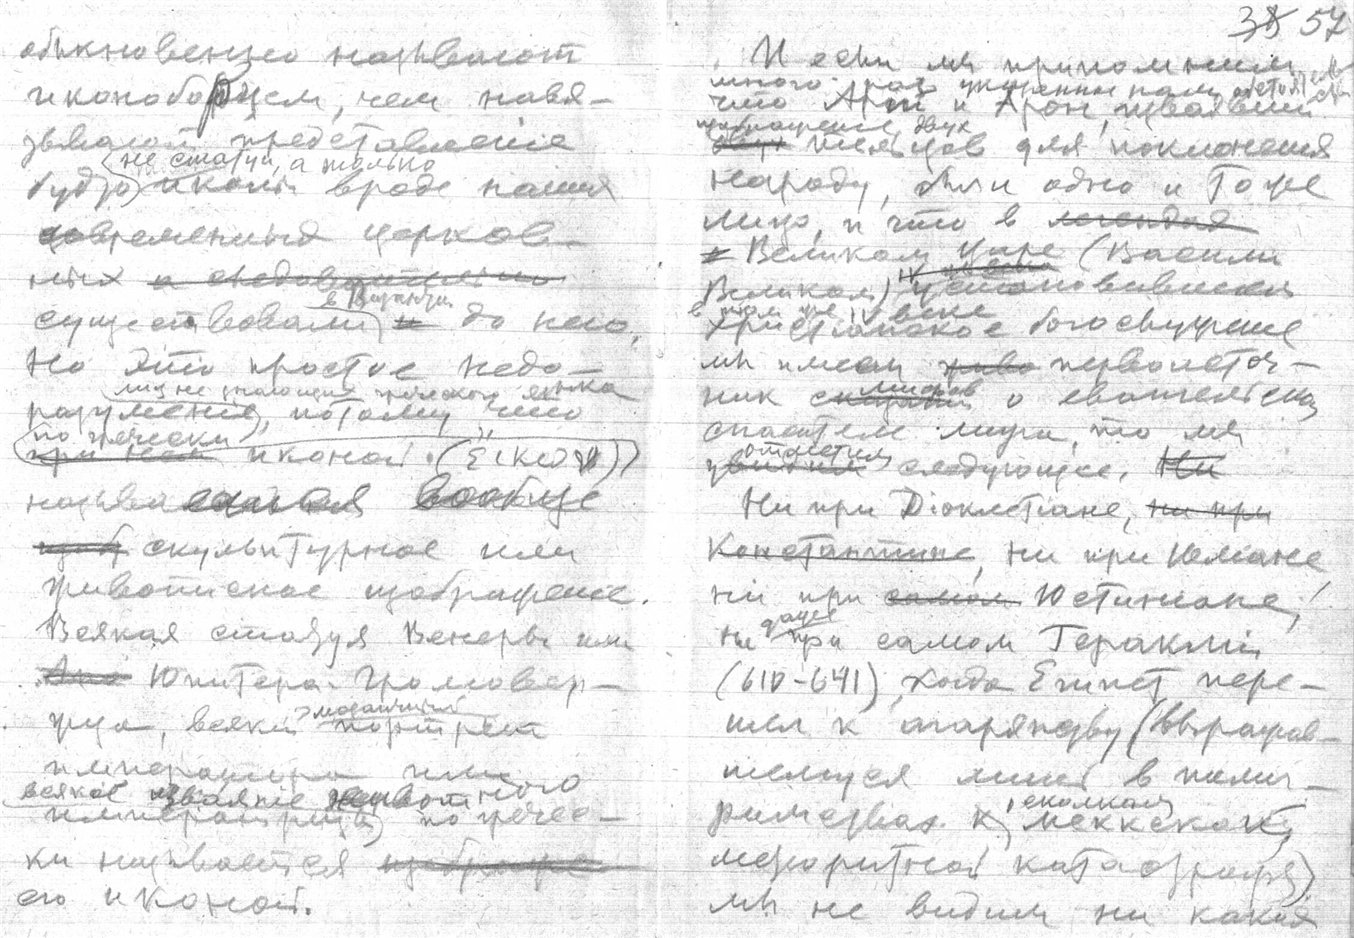 обыкновенно называют
иконоборцем, чем навя-
зывают представление
не статуи, а только
будто иконы вроде наших
современных церков-
ных а следовательно
в Византии
существовали до него.
Но это простое недо-
лиц не знающих греческого языка
разумение, потому что
по гречески
иконой (Εικων)
называлось вообще
скульптурное или
живописное изображение.
Всякая статуя Венеры или
Юпитера Громовер-
жца, всякий мозаичный портрет
императора или
всякое изваяние животного
императрицы по гречес-
ки называется
его иконой.
38 57
И если мы припомним
много раз
что Арий и Арон,
изображение двух
двух тельцов для поклонения
народу, были одно и тоже
лицо, и что в легендах
о Великом Царе (Василии
Великом)
в том же IV веке
христианское богослужение
мы имеем первоисточ-
ник мифов о евангельском
спасителе мира, то мы
отметим
увидим следующее. Ни
Ни при Диоклетіане, ни при
Константине, ни при Юлиане
ни при самом Юстиниане,
ни даже при самом Гераклии
(610-641), когда Египет пере-
шел к агарянству (выразив-
шемуся лишь в пили-
гримствах к осколкам меккской
метеоритной катастрофы)
мы не видим ни каких